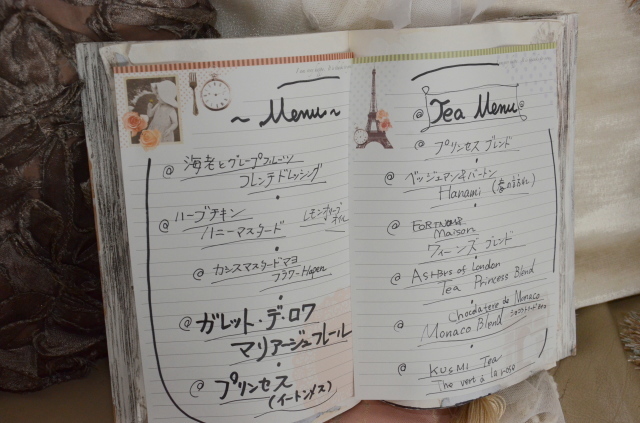 ~ Menu ~
@ 海老とグレープフルーツ
フレンチドレッシング
@ ハーブチキン
ハニーマスタード
レモンオリーブ
オイル
@ カシスマスタードマヨ
フラワー
@ ガレット・デ・ロワ
マリアージュフレール
@ プリンセス
(イートンメス)
@ Tea Menu @
@ プリンセス ブレンド
@ ベッジュマン&バートン
Hanami
@ FORTNUM
Maison
クィーンズ ブレンド
@ of London
Tea Princess Blend
@ de Monaco
Monaco Blend
@ KUSMI Tea
The vert à la rose